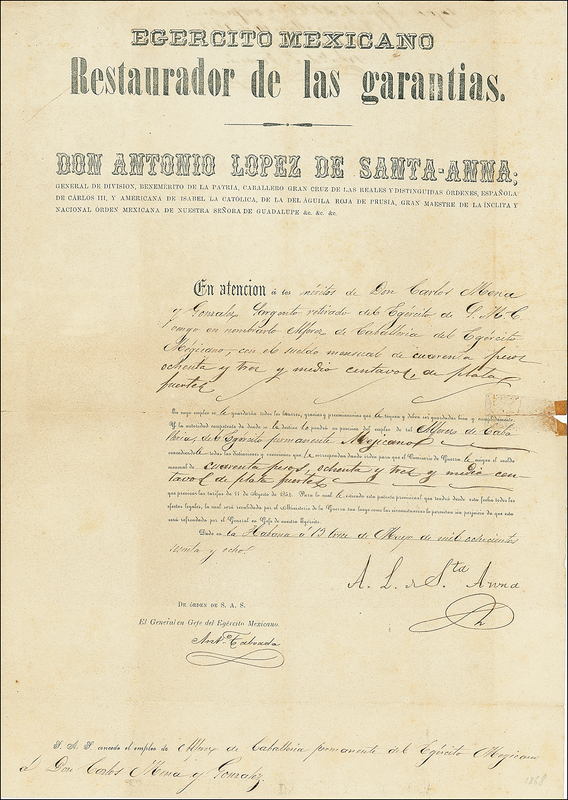 EGERCITO MEXICANO
Restaurador de las garantias.
DON ANTONIO LOPEZ DE SANTA-ANNA;
GENERAL DE DIVISION, BENEMÉRITO DE LA PATRIA, CABALLERO GRAN CRUZ DE LAS REALES Y DISTINGUIDAS ÓRDENES, ESPAÑOLA
DE CÁRLOS III, Y AMERICANA DE ISABEL LA CATÓLICA, DE LA DEL ÁGUILA ROJA DE PRUSIA, GRAN MAESTRE DE LA ÍNCLITA Y
NACIONAL ÓRDEN MEXICANA DE NUESTRA SEÑORA DE GUADALUPE &c. &c. &c.
En atencion á los méritos de Don Carlos Mena
y Gonzalz, Sargento retirado del Egército de S. M. C
en nombrarlo Alferez de Caballeria del Egército
Mejicano, con el sueldo mensual de cuarenta pesos
ochenta y tres y medio centavos, de plata
fuertes
En cuyo empleo se le guardarán todos los honores, gracias y preeminencias que le toquen y deben ser guardadas bien y cumplidamente.
Y la autoridad competente de donde se le destine le pondrá en posesion del empleo de tal Alferez de Caba
lleria, del Egército permanente Mejicano
el sueldo
mensual de cuarenta pesos, ochenta y tres y medio cen-
tavos de plata fuertes
efectos legales, la cual será revalidada por el Ministerio de la Guerra tan luego como las circunstancias lo permitan sin perjuicio de que esta
será refrendada por el General en Gefe de nuestro Egército.
Dado en la Habana á 13 trece de Mayo de mil ochocientos
senta y ocho.
A. L. de Sta Anna
DE ÓRDEN DE S. A. S.
El General en Gefe del Egército Mexicano.
Anto Taboada
S. A. S. concede el empleo de Alferez de Caballeria permanente del Egército Mejicano
á Don Carlos Mená y Gonzalz.
1868